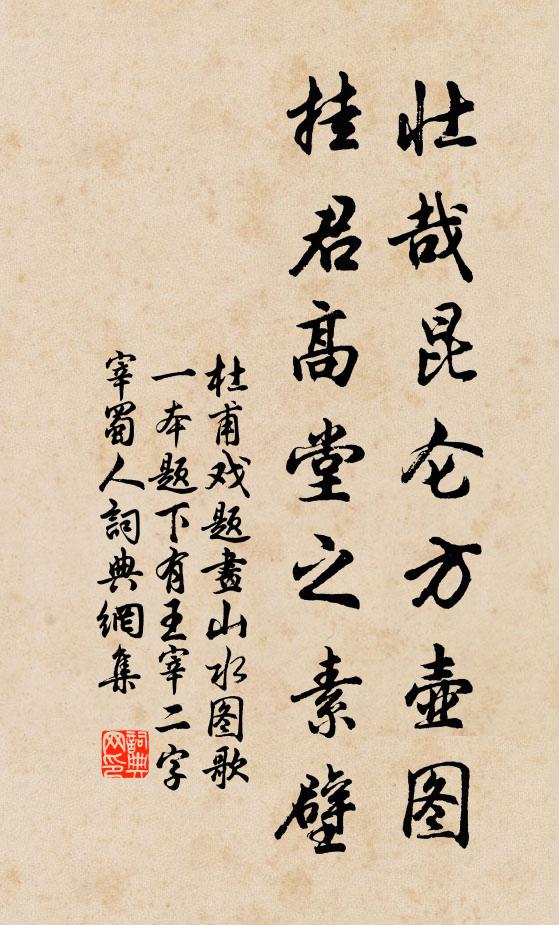 壮哉昆仑方壶图
挂君高堂之素壁
杜甫戏题畫山水图歌
一本题下有王宰二字
宰蜀人詞典網集
詞典
网印